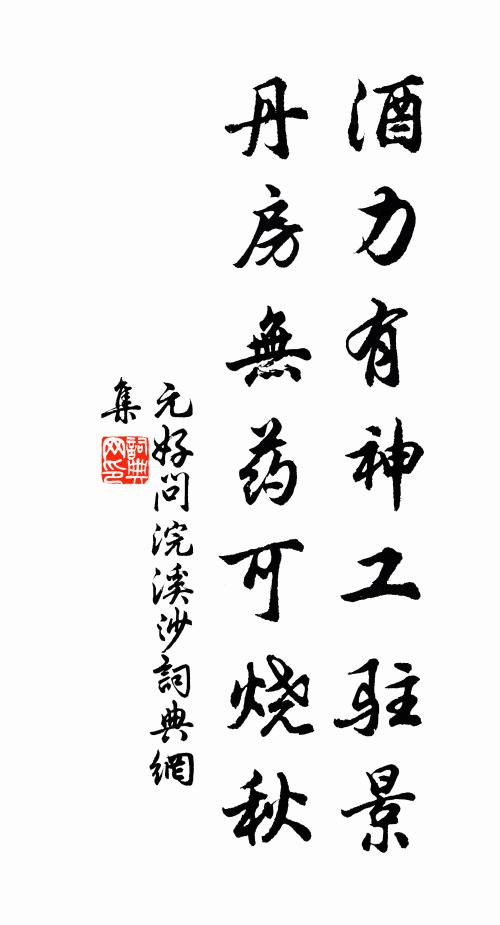 酒力有神工駐景
丹房無药可烧秋
元好问浣溪沙詞典網
集
詞典网印